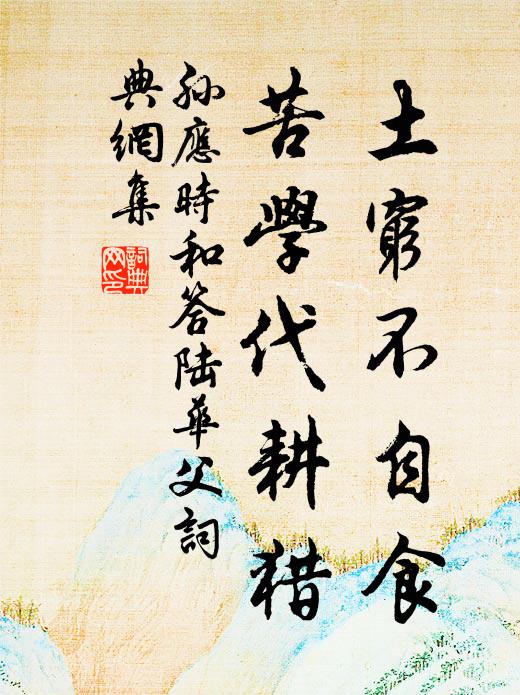 土窮不自食
苦學代耕猎
孫應時和答陸華父詞
典網集
詞典
网印